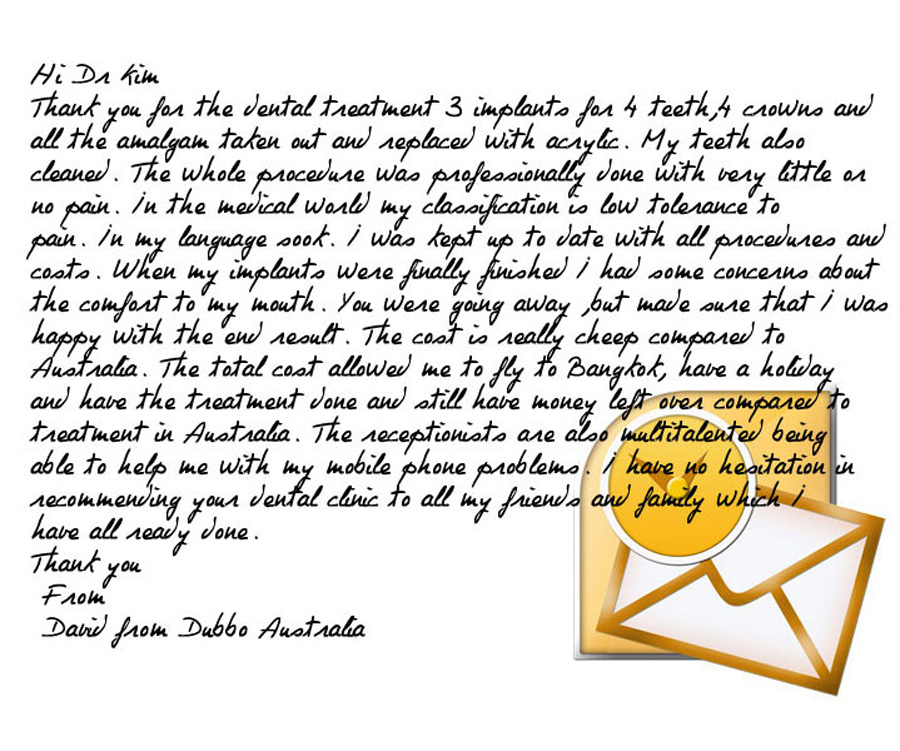 Hi Dr Kim
Thank you for the dental treatment 3 implants for 4 teeth,4 crowns and
all the amalgam taken out and replaced with acrylic. My teeth also
cleaned. The whole procedure was professionally done with very little or
no pain. In the medical world my classification is low tolerance to
pain. In my language sook. I was kept up to date with all procedures and
costs. When my implants were finally finished I had some concerns about
the comfort to my mouth. You were going away ,but made sure that I was
happy with the end result. The cost is really cheep compared to
Australia. The total cost allowed me to fly to Bangkok, have a holiday
and have the treatment done and still have money left over compared to
treatment in Australia. The receptionists are also multitalented being
able to help me with my mobile phone problems. I have no hesitation in
recommending your dental clinic to all my friends and family which I
have all ready done.
Thank you
From
David from Dubbo Australia